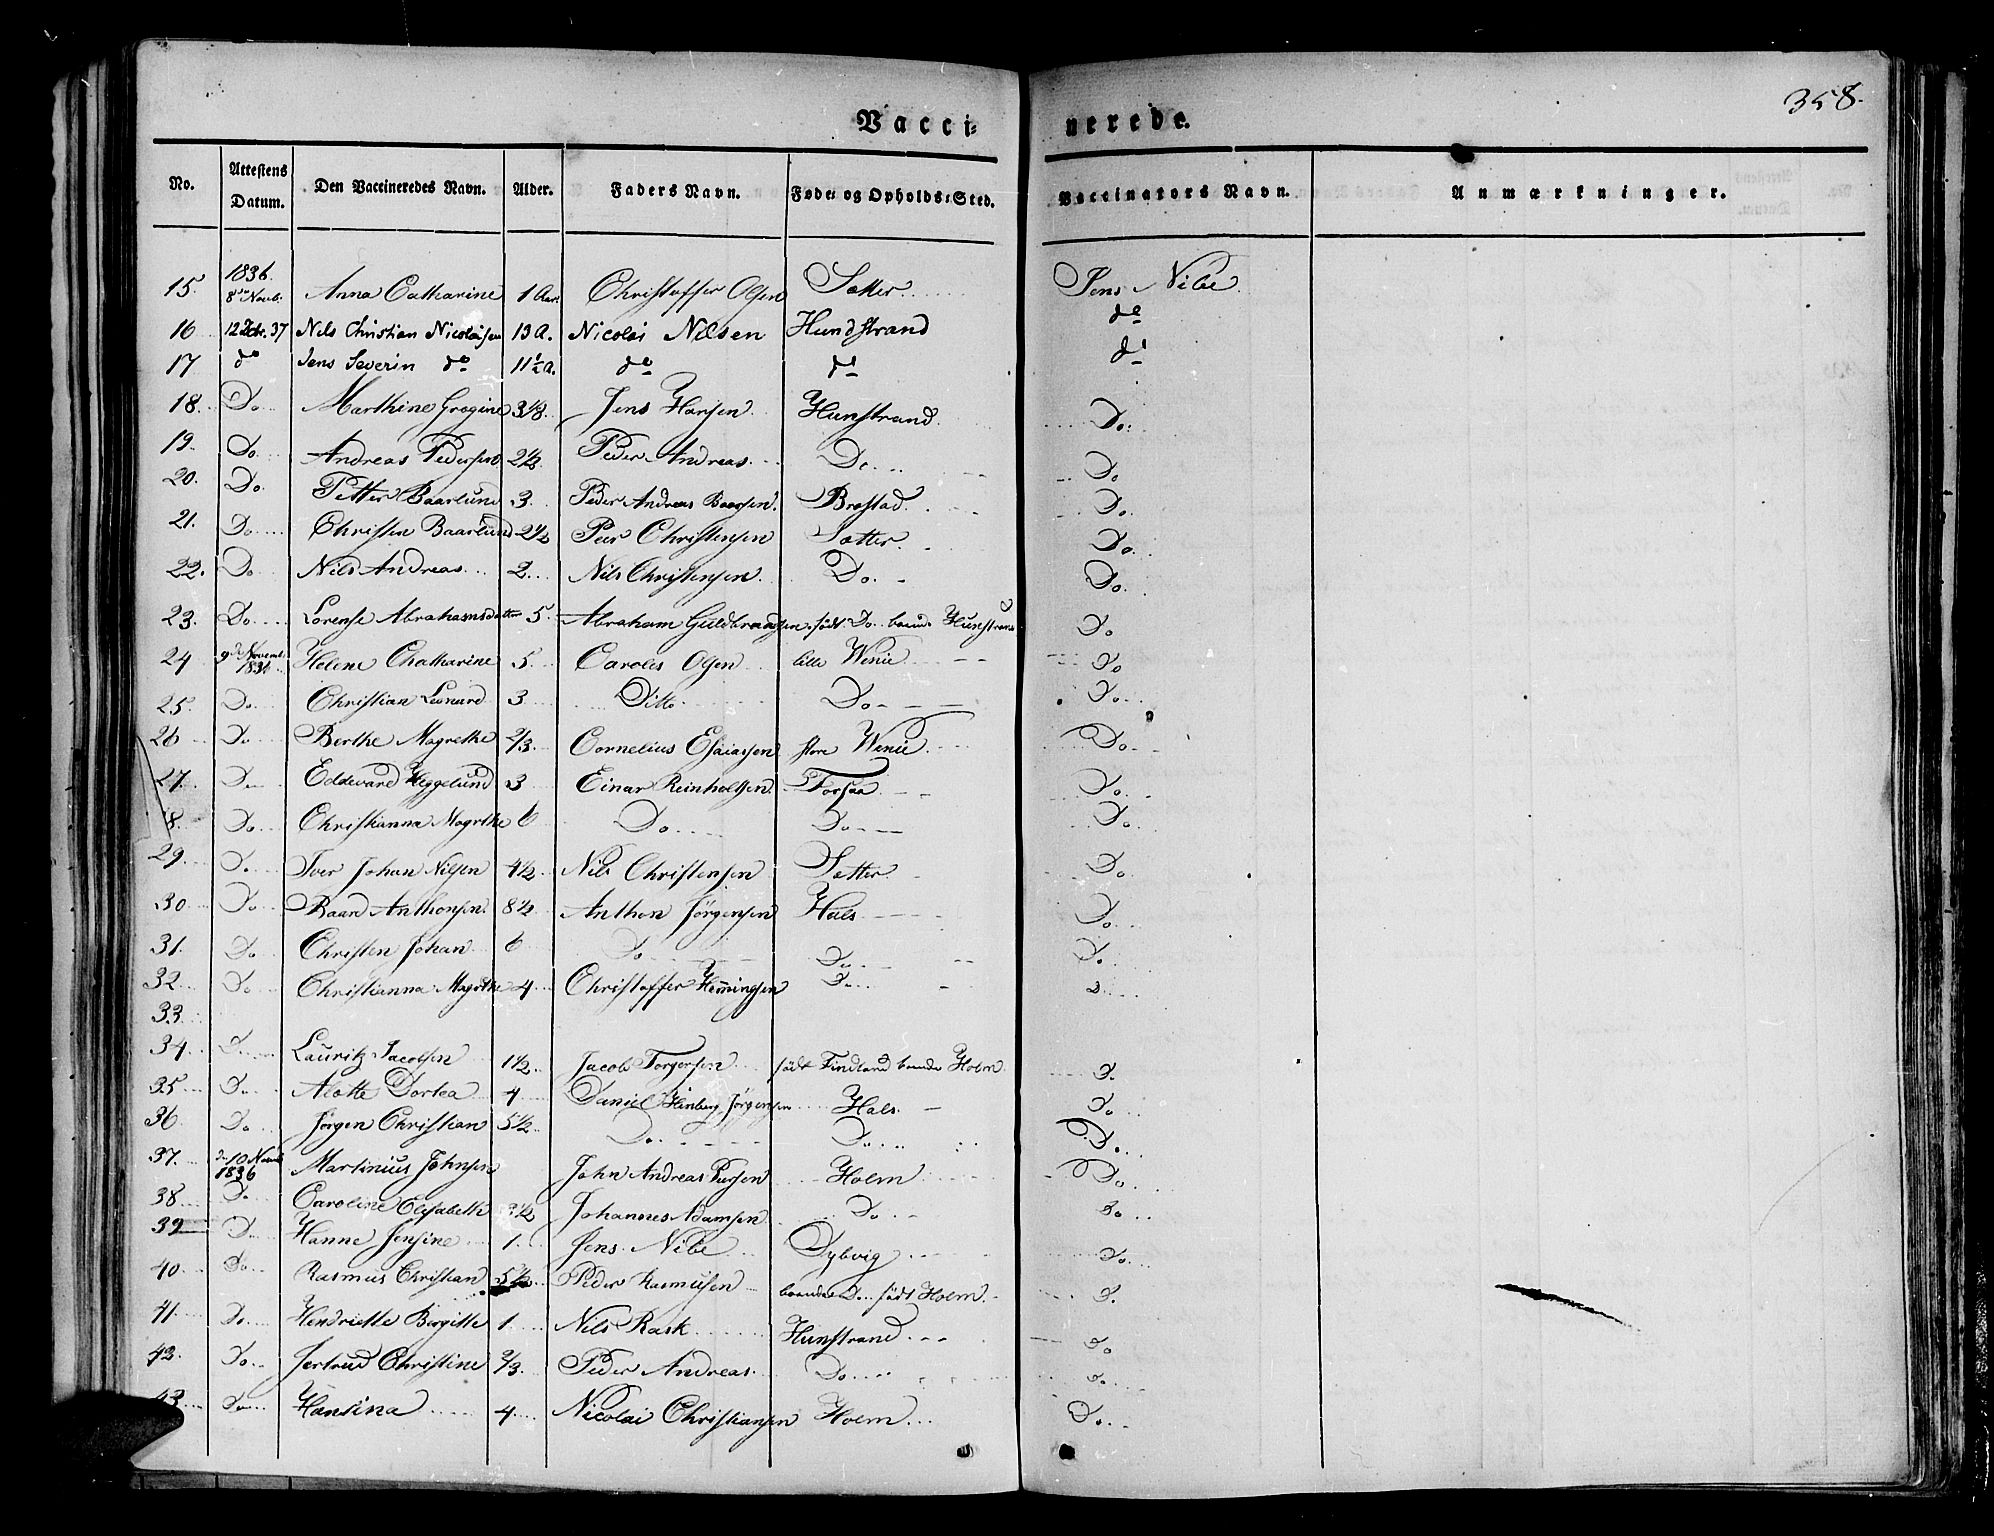 358.
Vacci= nerede.
No. Attestens Datum. Den Vaccineredes Navn. Alder. Faders Navn. Føde= og Opholds=Sted. Vaccinators Navn. Anmærkninger.
15. 1836. 8de Novbr. Anna Catharine 1 Aar. Christoffer Olsen Sætter. Jens Nibe
16 37 Nils Christian Nicolaisen 13 A. Nicolai Nilsen Hundstrand do
17 do Jens Severin do 11½ A. do do do
18. Do Marthine Gregine 3/8. Jens Hansen Hunstrand. Do.
19. Do. Andreas Pedersen 2½ Peder Andreas. Do. Do
20. Do. Petter Baarlund 3. Peder Andreas Baarsen. Brøstad. Do.
21. Do. Christen Baarlund 2½ Peer Christensen Sætter. Do.
22. Do Nils Andreas. 2. Nils Christensen. Do. Do.
23. Do. Lorense Abrahamsdatter 5. Abraham Guldbrandsen. født Do. boende Hunstrand Do
24 9de Novemb. 1836 Helene Chatharine 5. Carolis Olsen lille Wenie Do
25. Do. Christian Leonard 3 Ditto Do Do.
26 Do Berthe Magrethe 2/3. Cornelius Esaiassen store Wenie. Do.
27. Do Eddevard Heggelund 3 Einar Reinholtsen. Forsaa Do.
28. Do. Christianna Magrthe 6 Do. Do. Do.
29. Do. Iver Johan Nilsen 4½ Nils Christensen Sætter. Do.
30 Do Baard Anthonsen. 8½ Anthon Jørgensen Hals Do.
31. Do Christen Johan 6 Do Do. Do.
32. Do Christianna Magrthe 4 Christoffer Hemingsen Do. D
33.
34 D. Lauritz Jacobsen 1½ Jacob Torgersen. født Findland boende Holm. D.
35. Do. Alette Dortea. 4 Daniel Hinberg Jørgensen Hals. Do
36 Do. Jørgen Christian 5½ Do. Do. Do.
37. D. 10 Novbr 1836 Martinius Johnsen John Andreas Persen Holm Do.
38. Do. Caroline Elisabeth 3½ Johannes Adamsen Do. Do
39 Do. Hanne Jensine. 1. Jens Nibe Dybvig Do.
40. Do. Rasmus Christian 5½ Peder Rasmusen boende Do. født Holm. D.
41. Do. Hendriette Bergitte 1. Nils Rask Hunstrand Do
42. Do. Jertrud Christine 2/3. Peder Andreas. Do. Do.
43 Do Hansina 4. Nicolai Christiansen Holm Do.